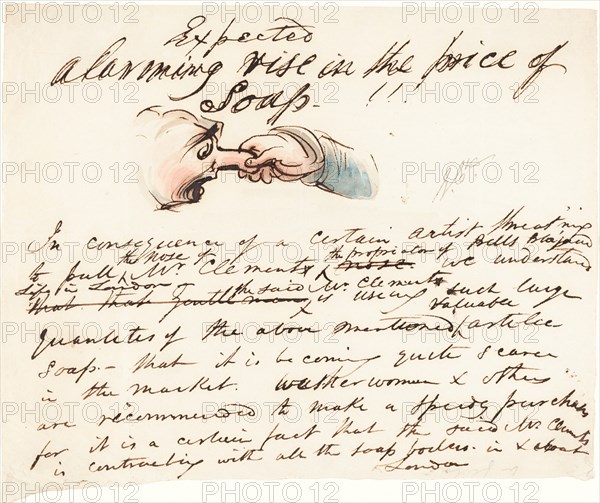 Expected
alarming rise in the price of
Soap - !!!
In consequence of a certain artist threat'nig
to pull the nose of Mr Clement the proprietor of Bells
Life in London nose we understand
that that gentleman the said Mr Clement is using such large
quantities of the above mentioned valuable article
Soap - that it is becoming quite scarce
in the market. Washerwomen & others
are recommended to make a speedy purchase
for it is a certain fact that the said Mr
is contracting with all the soap boilers in & about
London
PHOTO12